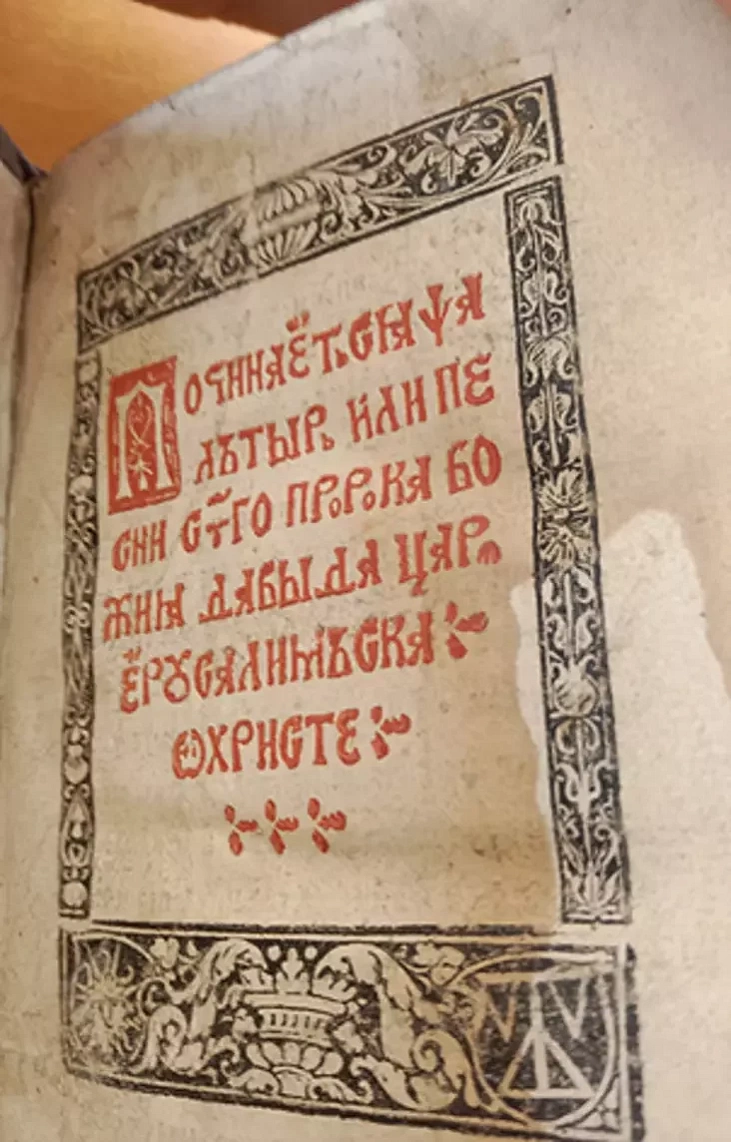 Починаеть сыа ѱа
льтырь или пе
сни ст҃го пророка бо
жиа давыда царѧ
ерꙋсалимьска
ѡ христе